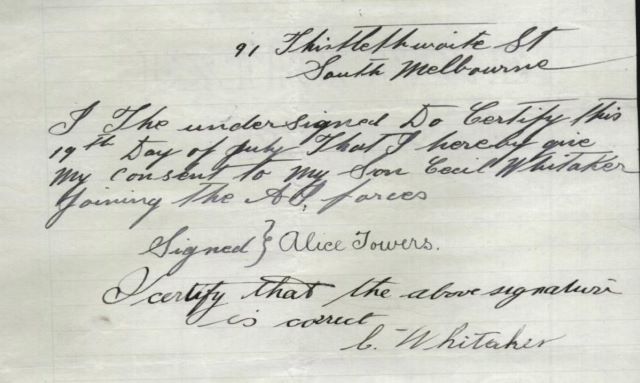 91 Thistlethwaite St
South Melbourne
I The undersigned Do Certify this
19th Day of July That I hereby give
My Consent to My Son Cecil Whitaker
Joining The A.I. forces
Signed } Alice Towers.
I certify that the above signature
is correct
C. Whitaker